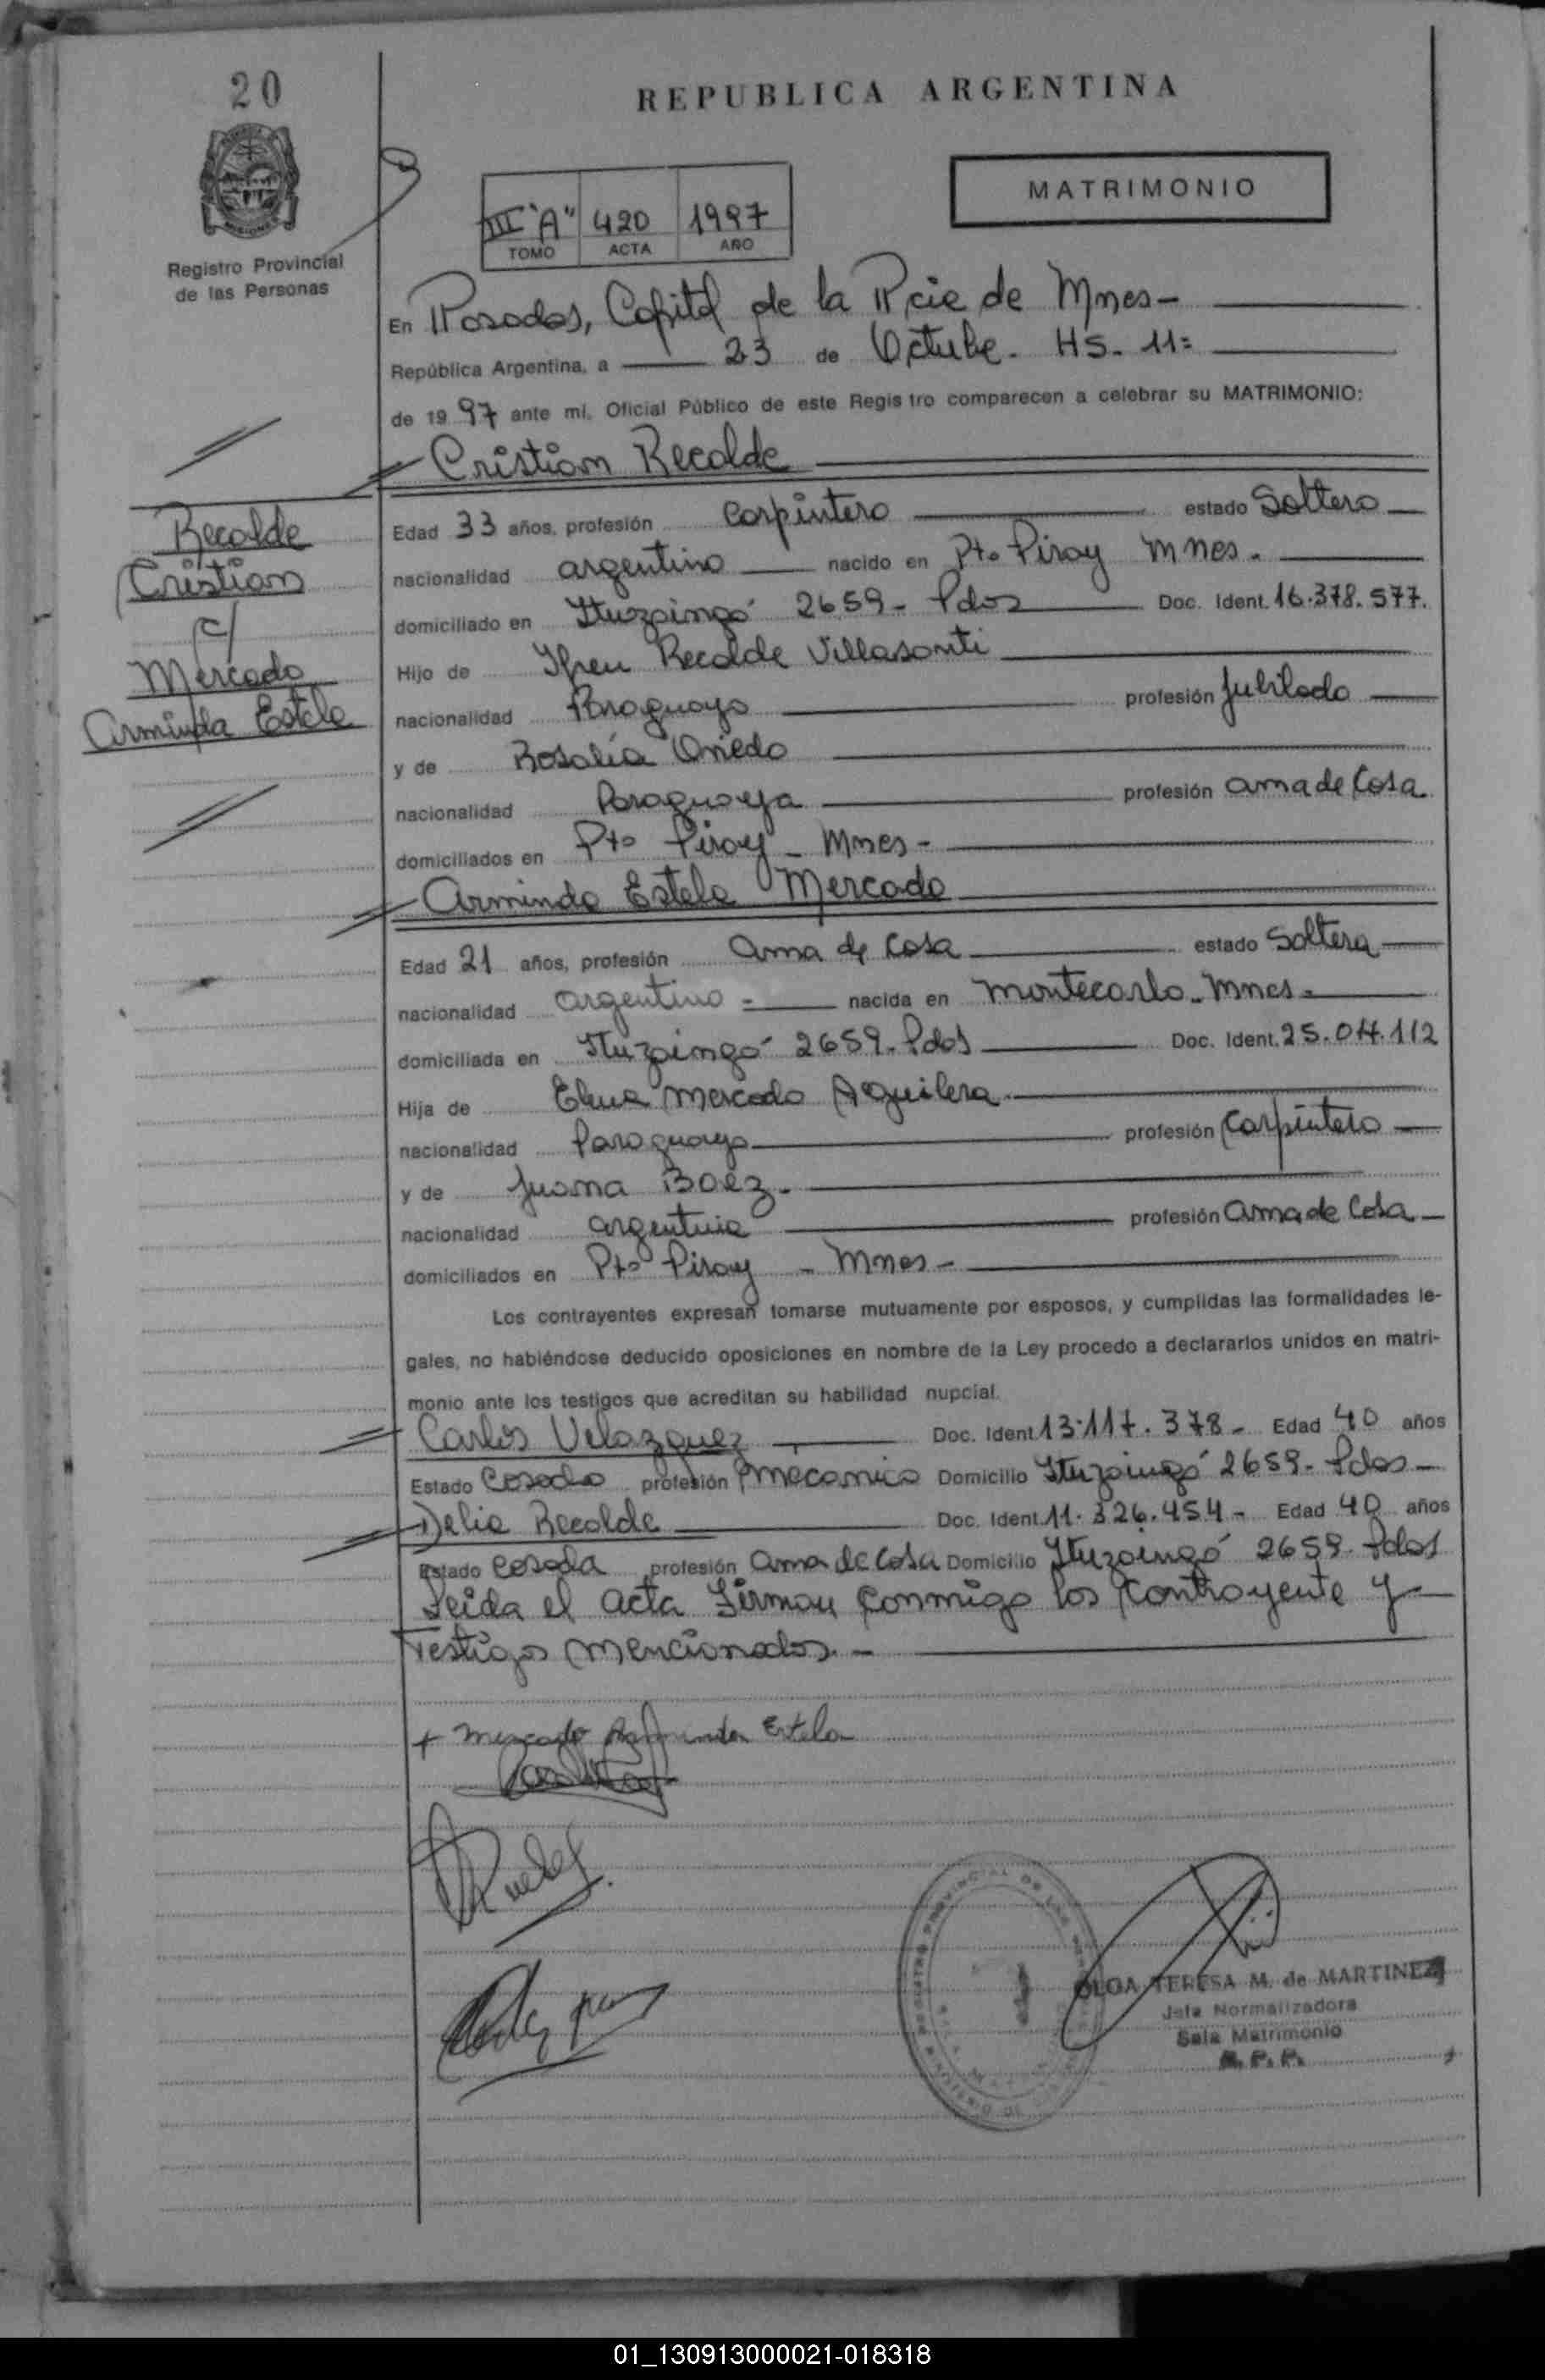 20
REPUBLICA ARGENTINA
MATRIMONIO
III "A" 420 1997
TOMO ACTA AÑO
Registro Provincial
de las Personas
En Posadas, Capital de la Pcie de Mnes-
República Argentina, a 23 de Octubre. HS. 11=
de 19 97 ante mi, Oficial Público de este Registro comparecen a celebrar su MATRIMONIO:
Cristian Recalde
Recalde
Cristian
c/
Mercado
Arminda Estela
Edad 33 años, profesión Carpintero estado Soltero
nacionalidad argentino nacido en Pto Piray Mnes.
domiciliado en Ituzaingó 2659- Pdas Doc. Ident. 16.378.577.
Hijo de Recalde Villasanti
nacionalidad Paraguayo profesión Jubilado
y de Rosalía Oviedo
nacionalidad Paraguaya profesión ama de Casa
domiciliados en Pto Piray - Mnes-
Arminda Estela Mercado
Edad 21 años, profesión Ama de Casa estado Soltera
nacionalidad argentina - nacida en Montecarlo - Mnes-
domiciliada en Ituzaingó 2659. Pdas Doc. Ident. 25.
Hija de Mercado Aguilera
nacionalidad Paraguayo profesión Carpintero
y de Juana Baez-
nacionalidad argentina profesión Ama de Casa
domiciliados en Pto Piray - Mnes-
Los contrayentes expresan tomarse mutuamente por esposos, y cumplidas las formalidades le-
gales, no habiéndose deducido oposiciones en nombre de la Ley procedo a declararlos unidos en matri-
monio ante los testigos que acreditan su habilidad nupcial.
Carlos Velazquez Doc. Ident 13.117.378- Edad 40 años
Estado Casado profesión Mecanico Domicilio Ituzaingó 2659- Pdas-
Delia Recalde Doc. Ident. 11.326.454- Edad 40 años
Estado Casada profesión Ama de Casa Domicilio Ituzaingó 2659- Pdas
Leida el acta Firman Conmigo los Contrayente y
Testigos Mencionados.-
+ Mercado Arminda Estela
OLGA TERESA M. de MARTINEZ
Jefa Normalizadora
Sala Matrimonio
R. P. P.
01_130913000021-018318